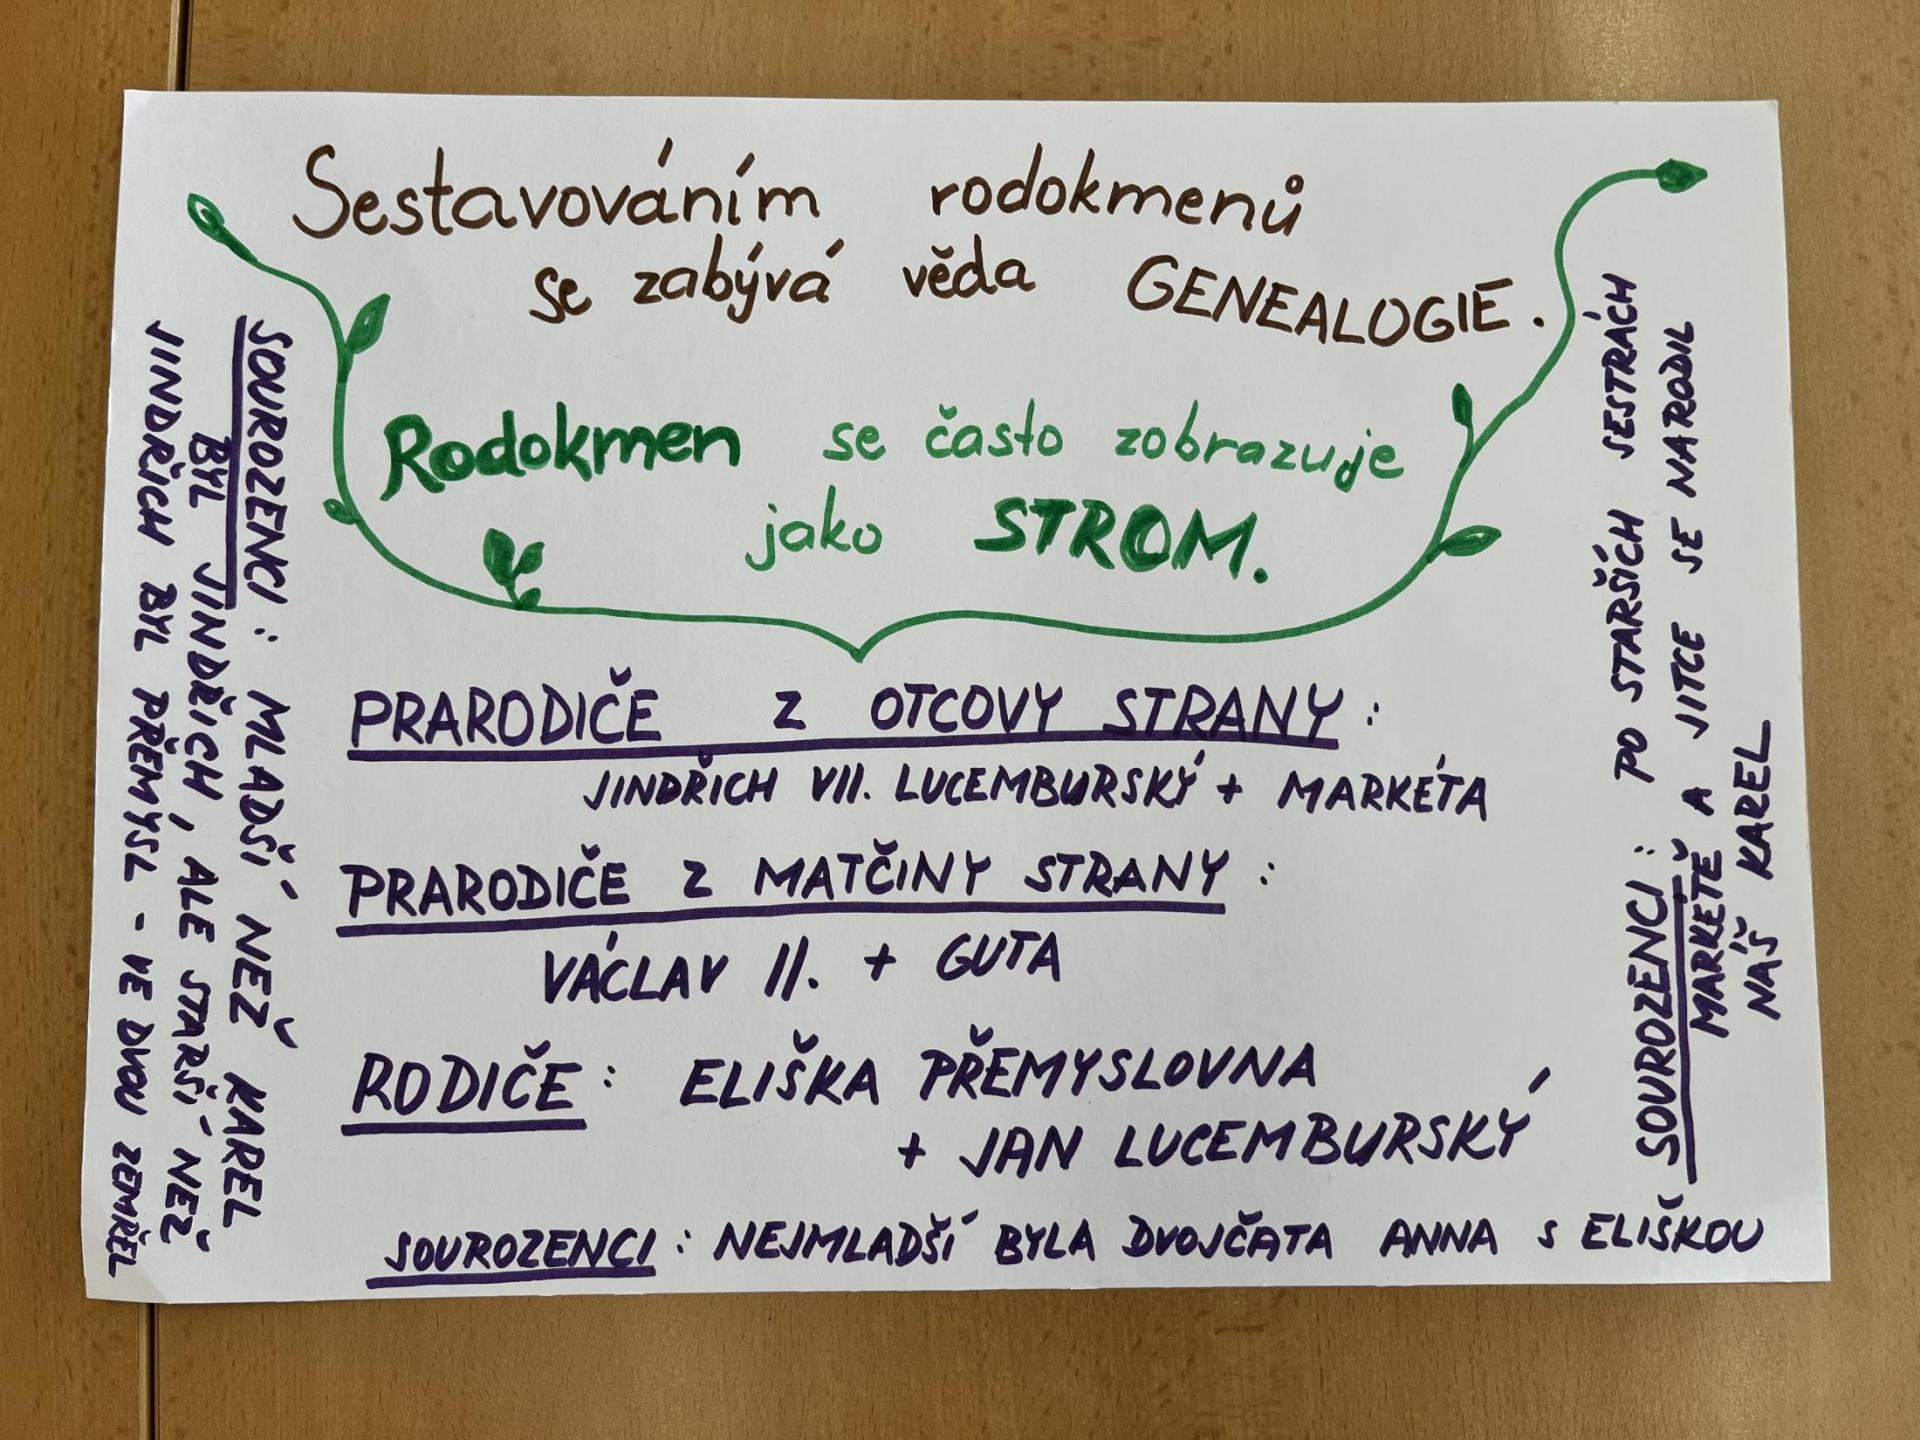 Sestavováním rodokmenů
se zabývá věda GENEALOGIE.
Rodokmen se často zobrazuje
jako STROM.
PRARODIČE Z OTCOVY STRANY:
JINDŘICH VII. LUCEMBURSKÝ + MARKÉTA
PRARODIČE Z MATČINY STRANY:
VÁCLAV II. + GUTA
RODIČE: ELIŠKA PŘEMYSLOVNA
+ JAN LUCEMBURSKÝ
SOUROZENCI: NEJMLADŠÍ BYLA DVOJČATA ANNA S ELIŠKOU
SOUROZENCI: MLADŠÍ NEŽ KAREL
BYL JINDŘICH, ALE STARŠÍ NEŽ
JINDŘICH BYL PŘEMYSL - VE DVOU ZEMŘEL
SOUROZENCI: PO STARŠÍCH SESTRÁCH
MARKÉTĚ A JITCE SE NARODIL
NÁŠ KAREL